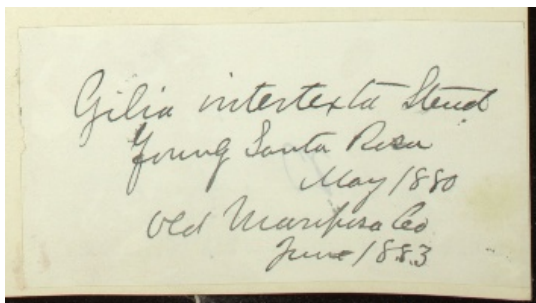 Gilia intertexta Steud
Young Santa Rosa
May 1880
Old Mariposa Co
June 1883